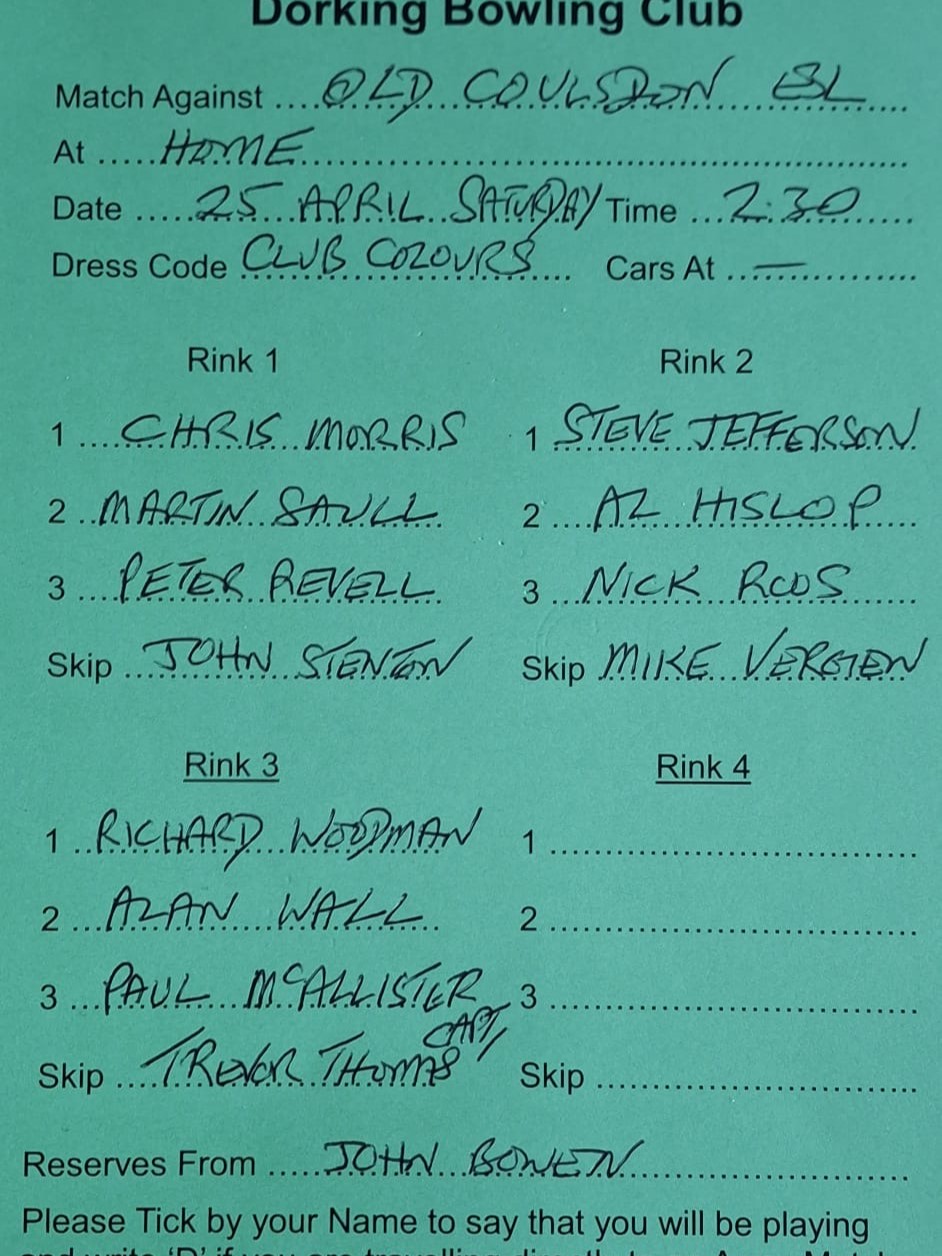 Dorking Bowling Club
Match Against ....OLD COULSDON BL....
At .....HOME.....
Date .....25 APRIL SATURDAY Time ...2:30....
Dress Code CLUB COLOURS.... Cars At ..—....
Rink 1
1 ....CHRIS MORRIS
2 ..MARTIN SAULL
3 ....PETER REVELL
Skip ..JOHN STENTON
Rink 2
1 STEVE JEFFERSON
2 ....AL HISLOP....
3 ...NICK ROOS....
Skip MIKE
Rink 3
1 ..RICHARD WOODMAN
2 ...ALAN WALL
3 ...PAUL McALLISTER
CAPT
Skip ....TREVOR THOMAS
Rink 4
1 ....
2 ....
3 ....
Skip ....
Reserves From .....JOHN BOWEN....
Please Tick by your Name to say that you will be playing